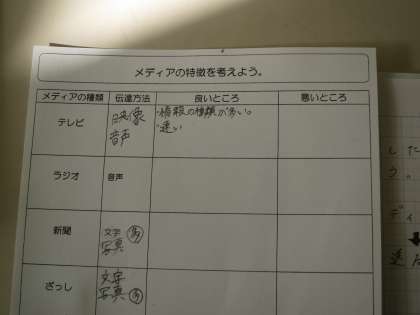 メディアの特徴を考えよう。
メディアの種類 伝達方法 良いところ 悪いところ
テレビ 映像 ・情報の種類が多い。
音声 ・速い
ラジオ 音声
新聞 文字
写真
ざっし 文字
写真
した
う。
ディ